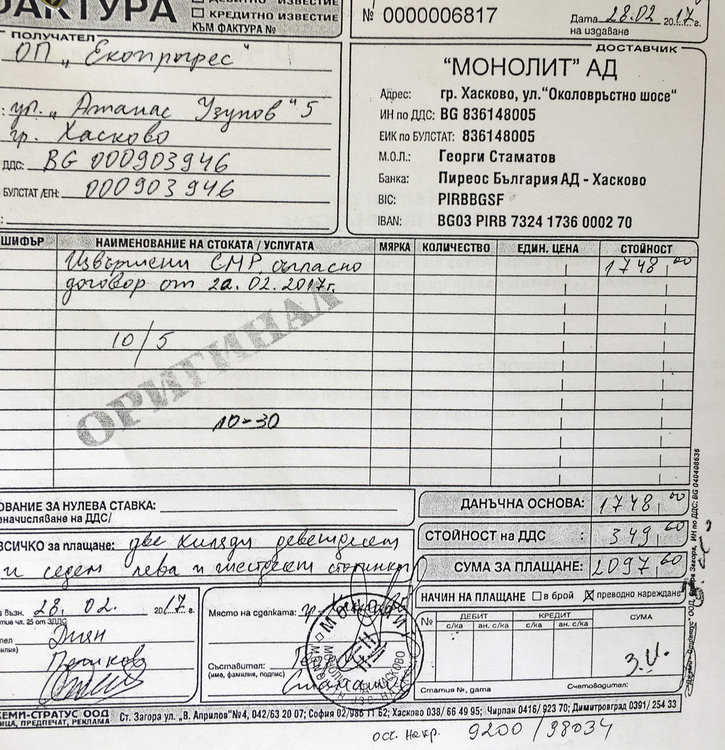 ФАКТУРА
ДЕБИТНО ИЗВЕСТИЕ
КРЕДИТНО ИЗВЕСТИЕ
КЪМ ФАКТУРА №
№ 0000006817
Дата 28.02 2017 г.
на издаване
ПОЛУЧАТЕЛ
ОП „Екопрогрес"
ул. „Атанас Узунов" 5
гр. Хасково
ДДС: BG 000903946
БУЛСТАТ /ЕГН: 000903946
ДОСТАВЧИК
"МОНОЛИТ" АД
Адрес: гр. Хасково, ул."Околовръстно шосе"
ИН по ДДС: BG 836148005
ЕИК по БУЛСТАТ: 836148005
М.О.Л.: Георги Стаматов
Банка: Пиреос България АД - Хасково
BIC: PIRBBGSF
IBAN: BG03 PIRB 7324 1736 0002 70
ШИФЪР НАИМЕНОВАНИЕ НА СТОКАТА / УСЛУГАТА МЯРКА КОЛИЧЕСТВО ЕДИН. ЦЕНА СТОЙНОСТ
Извършени СМР съгласно 1748,00
договор от 22.02.2017г.
10/5
ОРИГИНАЛ
10-30
ОВАНИЕ ЗА НУЛЕВА СТАВКА:
еначисляване на ДДС/
ДАНЪЧНА ОСНОВА: 1748,00
СТОЙНОСТ на ДДС : 349,60
СУМА ЗА ПЛАЩАНЕ: 2097,60
ВСИЧКО за плащане: две хиляди деветдесет
и седем лева и шестдесет стотинки
НАЧИН НА ПЛАЩАНЕ в брой X преводно нареждане
възн. 28.02. 2017 г.
тие чл. 25 от ЗДДС
Янян
Пейков
Място на сделката: гр. Хасково
Съставител:
(име, фамилия, подпис)
Стаматов
№ ДЕБИТ КРЕДИТ СУМА
с/ка ан. с/ка с/ка ан. с/ка
Статия №, дата Счетоводител:
ХЕМИ-СТРАТУС ООД Ст. Загора ул. „В. Априлов"№4, 042/63 20 07; София 02/986 11 62; Хасково 038/ 66 49 95; Чирпан 0416/ 923 70; Димитровград 0391/ 254 33
ИЦА, ПРЕДПЕЧАТ, РЕКЛАМА
9200 / 98034